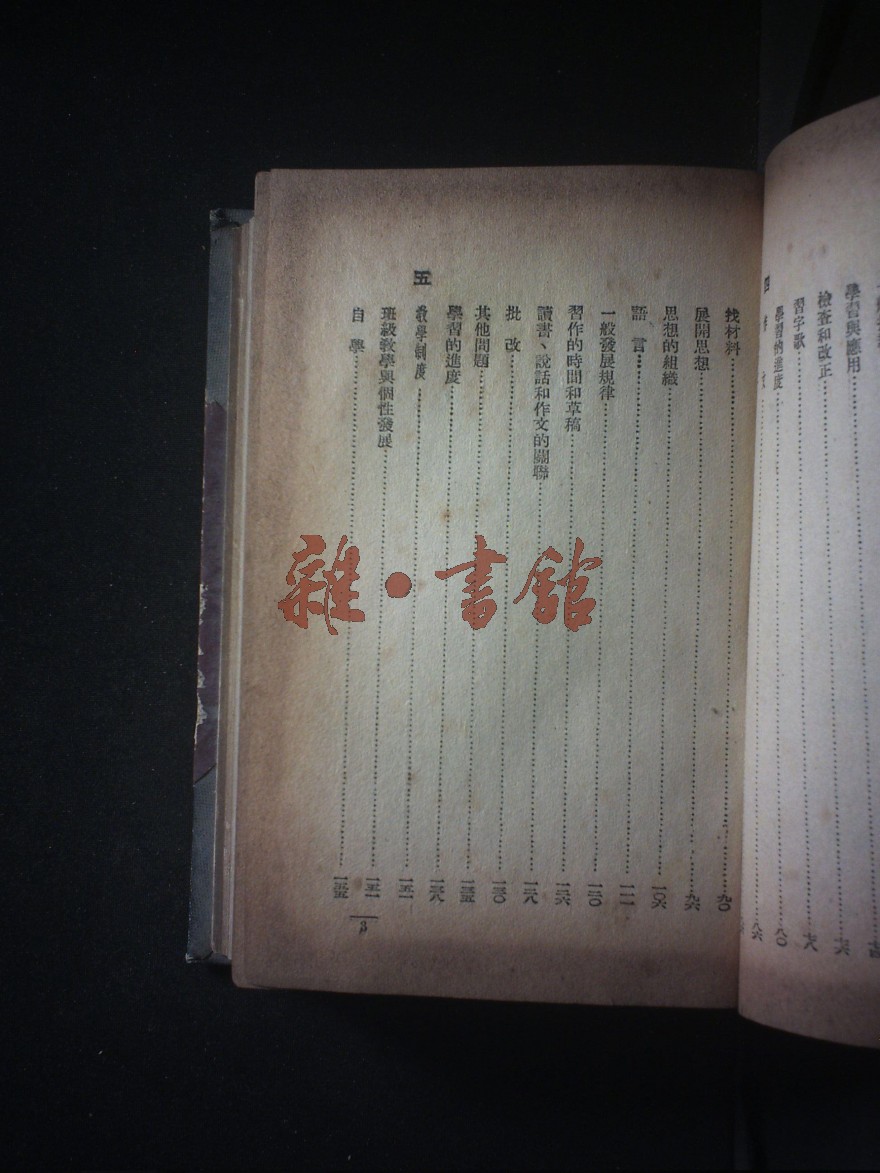 學習與應用
檢查和改正
習字歌……六八
學習的進度……八〇
四
八六
找材料……九〇
展開思想……九六
思想的組織……一〇六
語言……一一一
一般發展規律……一二〇
習作的時間和草稿……一二六
讀書、說話和作文的關聯……一二八
批改……一三〇
其他問題……一三五
學習的進度……一三八
五 教學制度……一五一
班級教學與個性發展……一五一
自學……一五五
3
雜·書館